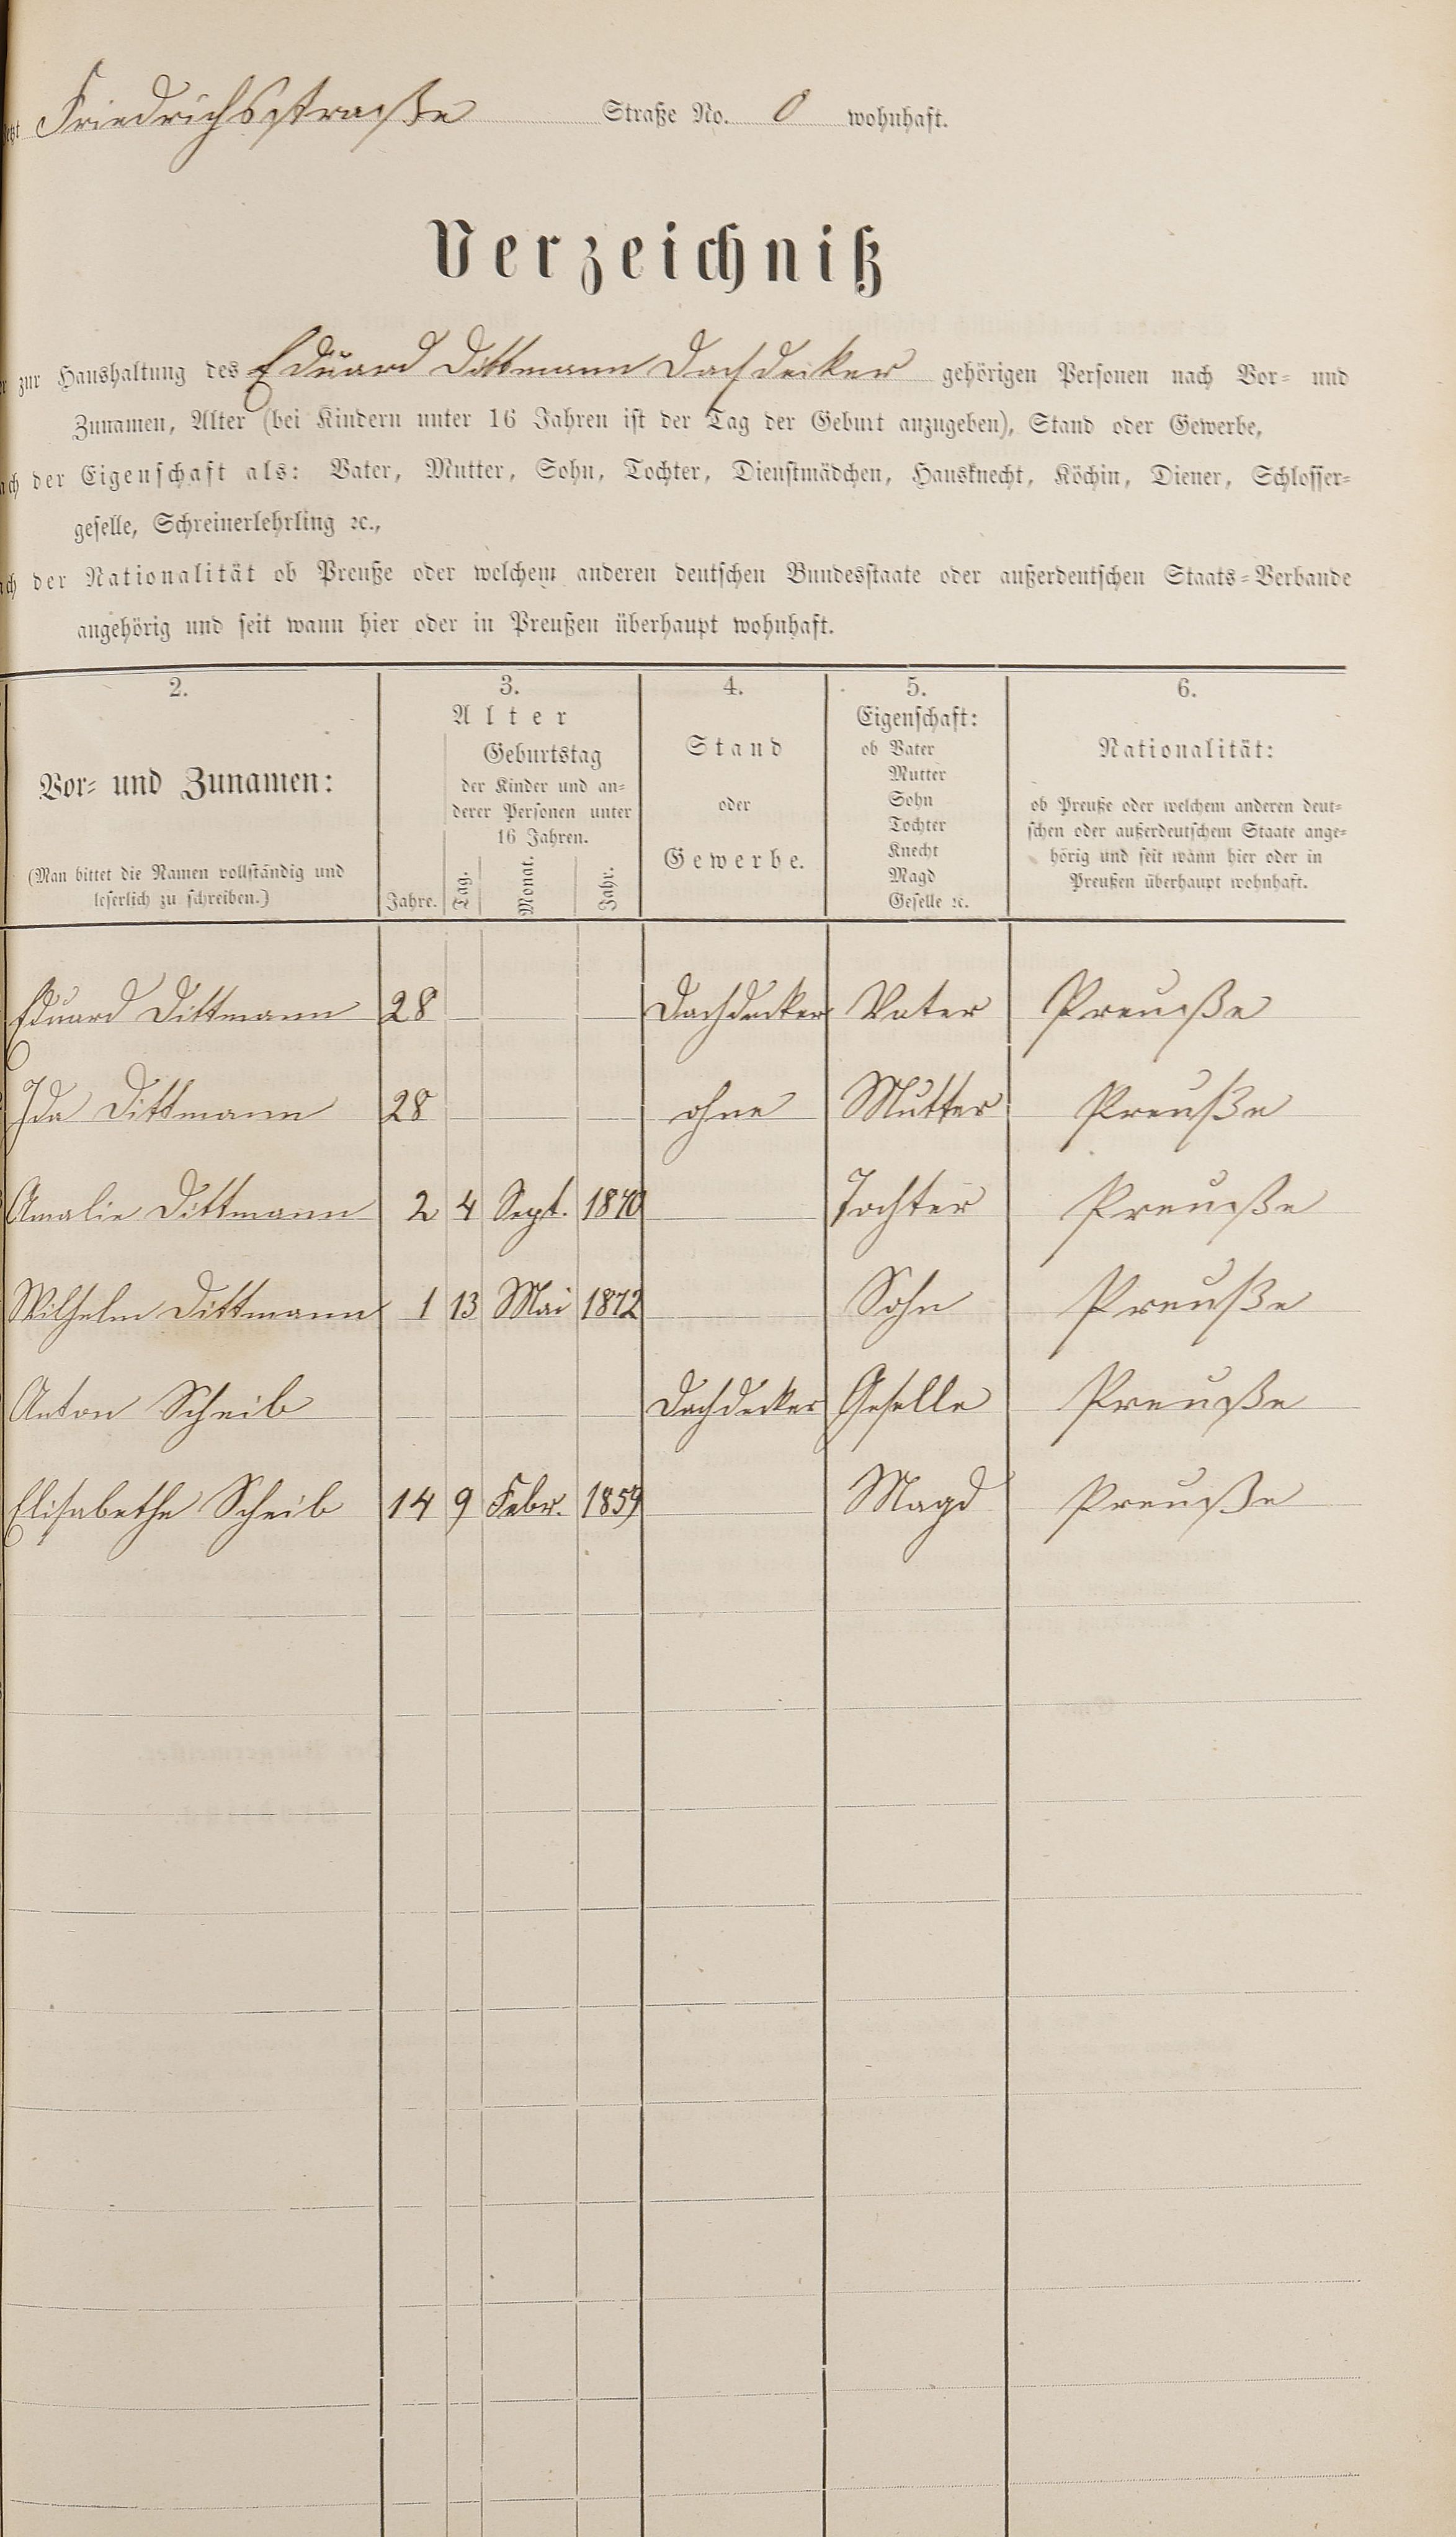 jetzt Friedrichsstraße Straße No. 0 wohnhaft.
Verzeichniß
zur Haushaltung des Eduard Dittmann Dachdecker gehörigen Personen nach Vor- und
Zunamen, Alter (bei Kindern unter 16 Jahren ist der Tag der Geburt anzugeben), Stand oder Gewerbe,
der Eigenschaft als: Vater, Mutter, Sohn, Tochter, Dienstmädchen, Hausknecht, Köchin, Diener, Schlosser-
geselle, Schreinerlehrling ꝛc.,
der Nationalität ob Preuße oder welchem anderen deutschen Bundesstaate oder außerdeutschen Staats-Verbande
angehörig und seit wann hier oder in Preußen überhaupt wohnhaft.
2. 3. 4. 5. 6.
Vor- und Zunamen:
(Man bittet die Namen vollständig und
leserlich zu schreiben.)
Alter
Jahre.
Geburtstag
der Kinder und an-
derer Personen unter
16 Jahren.
Tag. Monat. Jahr.
Stand
oder
Gewerbe.
Eigenschaft:
ob Vater
Mutter
Sohn
Tochter
Knecht
Magd
Geselle ꝛc.
Nationalität:
ob Preuße oder welchem anderen deut-
schen oder außerdeutschem Staate ange-
hörig und seit wann hier oder in
Preußen überhaupt wohnhaft.
Eduard Dittmann 28 Dachdecker Vater Preuße
Ida Dittmann 28 ohne Mutter Preuße
Amalie Dittmann 2 4 Sept. 1870 Tochter Preuße
Wilhelm Dittmann 1 13 Mai 1872 Sohn Preuße
Anton Scheib Dachdecker Geselle Preuße
Elisabethe Scheib 14 9 Febr. 1859 Magd Preuße